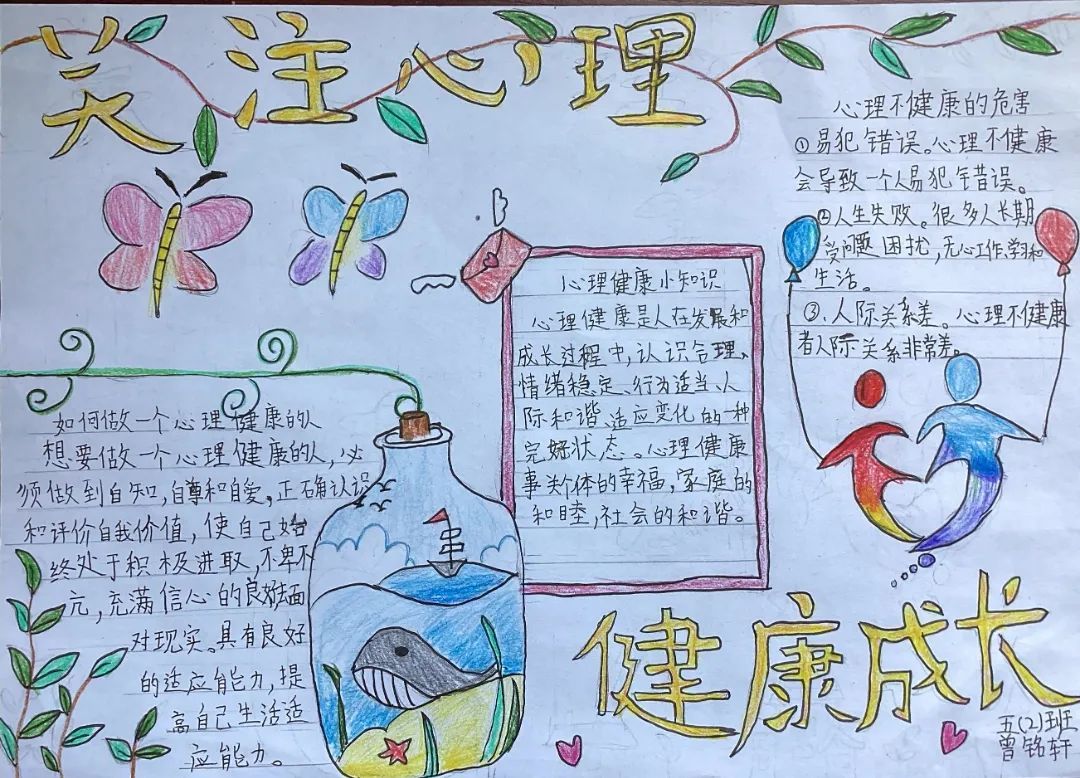 关注心理
心理不健康的危害
①易犯错误。心理不健康
会导致一个人易犯错误。
②人生失败。很多人长期
受问题困扰,无心工作、学习和
生活。
③.人际关系差。心理不健康
者人际关系非常差。
心理健康小知识
心理健康是人在发展和
成长过程中,认识合理、
情绪稳定、行为适当、人
际和谐、适应变化的一种
完好状态。心理健康
事关个体的幸福,家庭的
和睦,社会的和谐。
如何做一个心理健康的人
想要做一个心理健康的人,必
须做到自知,自尊和自爱,正确认识
和评价自我价值,使自己始
终处于积极进取,不卑不
亢,充满信心的良好面
对现实。具有良好
的适应能力,提
高自己生活适
应能力。
健康成长
五(2)班
曾铭轩